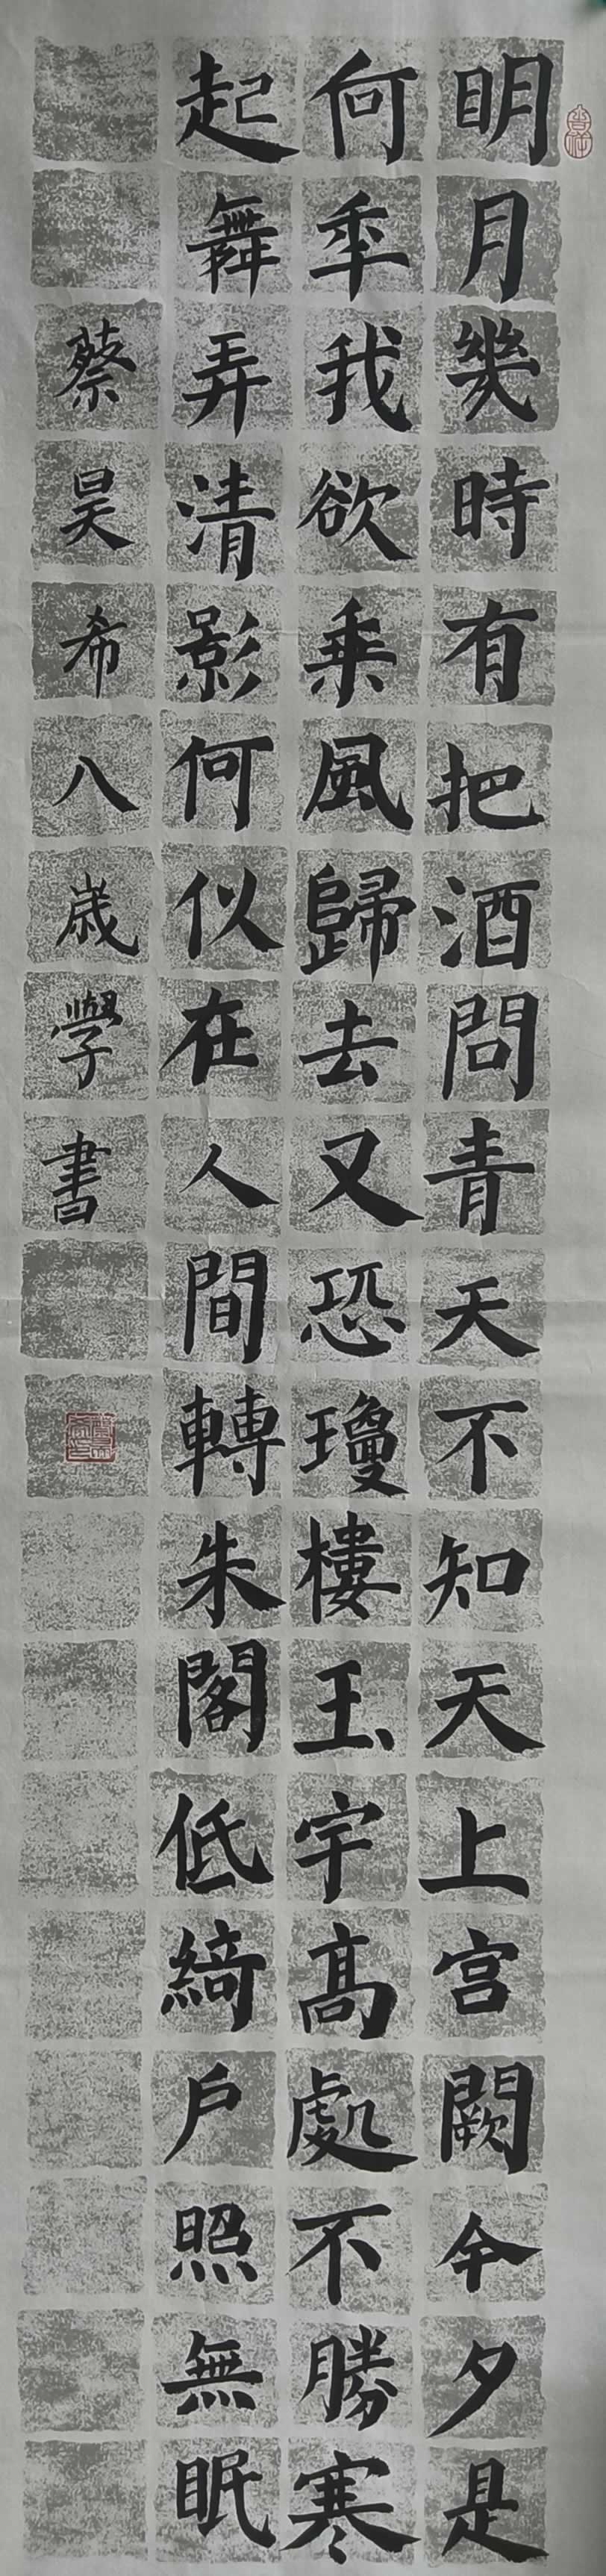 明月幾時有把酒問青天不知天上宮闕今夕是
何年我欲乘風歸去又恐瓊樓玉宇高處不勝寒
起舞弄清影何似在人間轉朱閣低綺戶照無眠
蔡昊希八歲學書